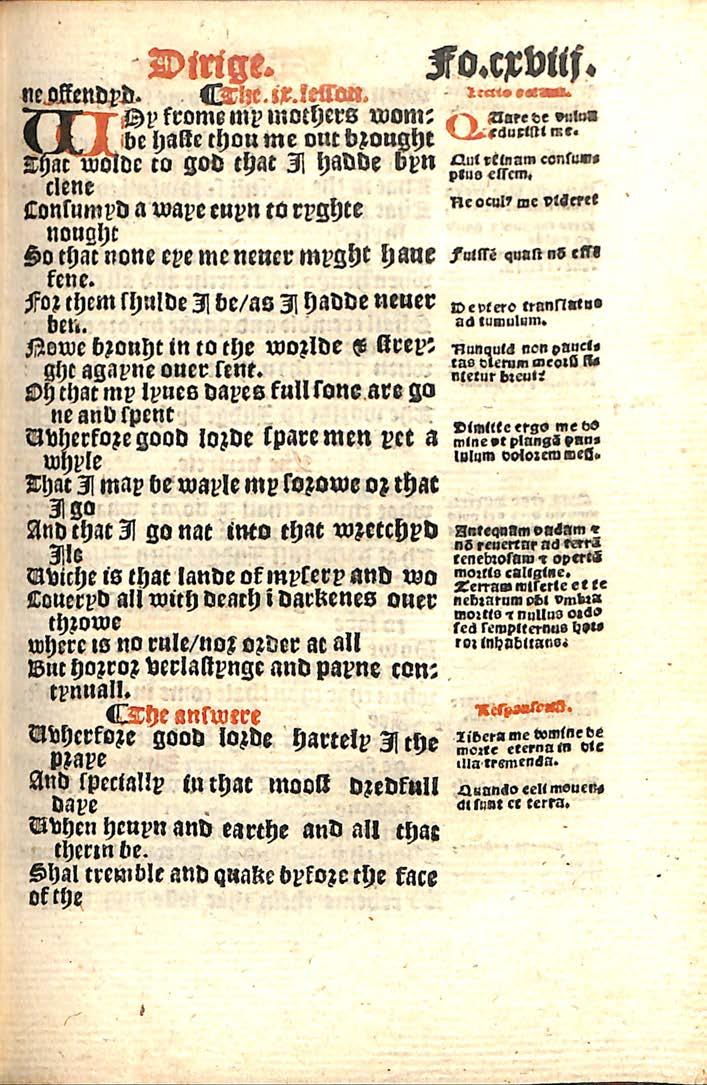 Dirige. Fo.cxviii.
ne offendyd. ¶The .ix. lesson.
WHy frome my mothers wom:
be haste thou me out brought
That wolde to god that I hadde byn
clene
Consumyd a waye euyn to ryghte
nought
So that none eye me neuer myght haue
sene.
For them shulde I be/as I hadde neuer
ben.
Nowe brouht in to the worlde & strey:
ght agayne ouer sent.
Oh that my lyues dayes full sone are go
ne and spent
Uvherfore good lorde spare men yet a
whyle
That I may be wayle my sorowe or that
I go
And that I go nat into that wretchyd
Ile
Uviche is that lande of mysery and wo
Coueryd all with death ī darkenes ouer
throwe
where is no rule/nor order at all
But horror verlastynge and payne con:
tynuall.
¶The answere
Uvherfore good lorde hartely I the
praye
And specially in that moost dredfull
daye
Uvhen heuyn and earthe and all that
therin be.
Shal tremble and quake byfore the face
of the
Lectio
Quare de vulua
eduxisti me.
Qui vtinam consum=
ptus essem.
Ne ocul⁹ me videret
Fuissē quasi nō essē
De vtero translatus
ad tumulum.
Nunquid non pauci=
tas dierum meorū fi=
nietur breui?
Dimitte ergo me do
mine vt plangā pau=
lulum dolorem meū.
Antequam vadam ⁊
nō reuertar ad terrā
tenebrosam ⁊ opertā
mortis caligine.
Terram miserie et te
nebrarum vbi vmbra
mortis ⁊ nullus ordo
sed sempiternus hor=
ror inhabitans:
Responsoriū.
Libera me domine de
morte eterna in die
illa tremenda.
Quando celi mouen=
di sunt et terra.